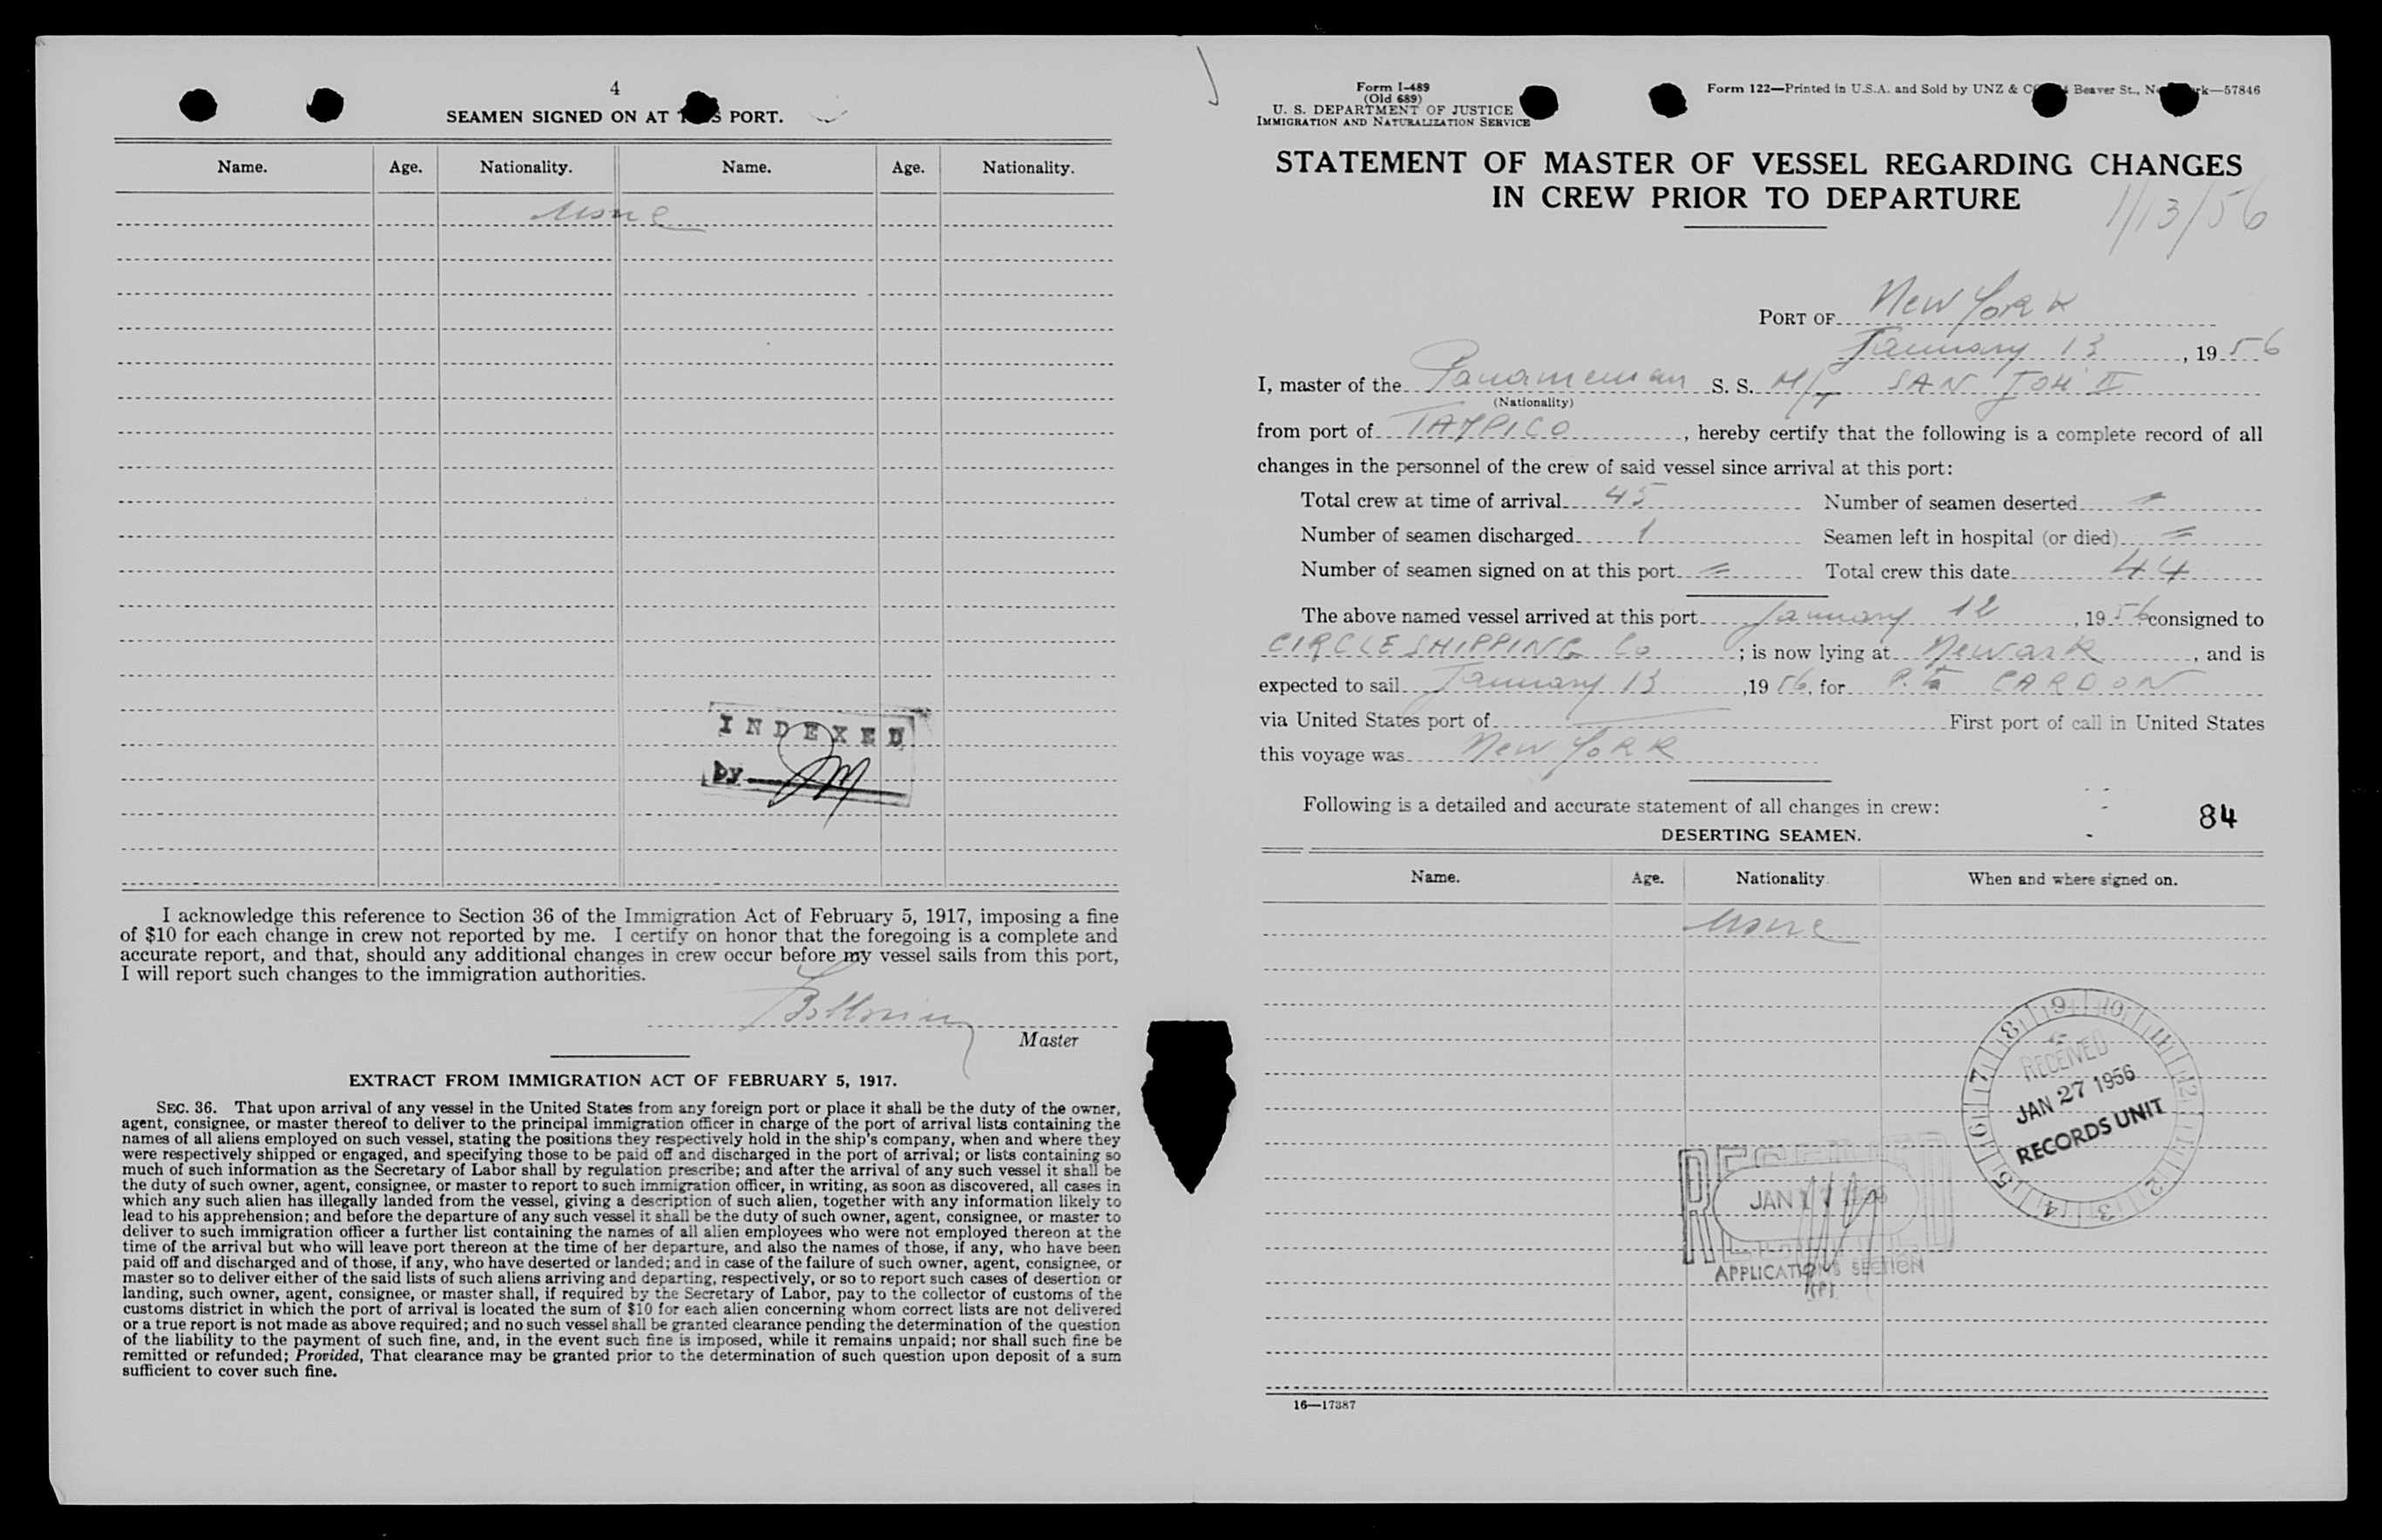 4
SEAMEN SIGNED ON AT THIS PORT.
Name. Age. Nationality. Name. Age. Nationality.
None
INDEXED
by
I acknowledge this reference to Section 36 of the Immigration Act of February 5, 1917, imposing a fine
of $10 for each change in crew not reported by me. I certify on honor that the foregoing is a complete and
accurate report, and that, should any additional changes in crew occur before my vessel sails from this port,
I will report such changes to the immigration authorities.
Master
EXTRACT FROM IMMIGRATION ACT OF FEBRUARY 5, 1917.
SEC. 36. That upon arrival of any vessel in the United States from any foreign port or place it shall be the duty of the owner,
agent, consignee, or master thereof to deliver to the principal immigration officer in charge of the port of arrival lists containing the
names of all aliens employed on such vessel, stating the positions they respectively hold in the ship's company, when and where they
were respectively shipped or engaged, and specifying those to be paid off and discharged in the port of arrival; or lists containing so
much of such information as the Secretary of Labor shall by regulation prescribe; and after the arrival of any such vessel it shall be
the duty of such owner, agent, consignee, or master to report to such immigration officer, in writing, as soon as discovered, all cases in
which any such alien has illegally landed from the vessel, giving a description of such alien, together with any information likely to
lead to his apprehension; and before the departure of any such vessel it shall be the duty of such owner, agent, consignee, or master to
deliver to such immigration officer a further list containing the names of all alien employees who were not employed thereon at the
time of the arrival but who will leave port thereon at the time of her departure, and also the names of those, if any, who have been
paid off and discharged and of those, if any, who have deserted or landed; and in case of the failure of such owner, agent, consignee, or
master so to deliver either of the said lists of such aliens arriving and departing, respectively, or so to report such cases of desertion or
landing, such owner, agent, consignee, or master shall, if required by the Secretary of Labor, pay to the collector of customs of the
customs district in which the port of arrival is located the sum of $10 for each alien concerning whom correct lists are not delivered
or a true report is not made as above required; and no such vessel shall be granted clearance pending the determination of the question
of the liability to the payment of such fine, and, in the event such fine is imposed, while it remains unpaid; nor shall such fine be
remitted or refunded; Provided, That clearance may be granted prior to the determination of such question upon deposit of a sum
sufficient to cover such fine.
Form I-489
(Old 689)
U. S. DEPARTMENT OF JUSTICE
IMMIGRATION AND NATURALIZATION SERVICE
Form 122—Printed in U.S.A. and Sold by UNZ & Beaver St., —57846
STATEMENT OF MASTER OF VESSEL REGARDING CHANGES
IN CREW PRIOR TO DEPARTURE
1/13/56
PORT OF New York
January 13, 1956
I, master of the Panamenian S. S. M/T SAN
(Nationality)
from port of TAMPICO, hereby certify that the following is a complete record of all
changes in the personnel of the crew of said vessel since arrival at this port:
Total crew at time of arrival 45 Number of seamen deserted
Number of seamen discharged 1 Seamen left in hospital (or died)
Number of seamen signed on at this port Total crew this date 44
The above named vessel arrived at this port January 12, 1956 consigned to
CIRCLE SHIPPING Co; is now lying at Newark, and is
expected to sail January 13, 1956, for P.ta CARDON
via United States port of First port of call in United States
this voyage was New York
Following is a detailed and accurate statement of all changes in crew:
84
DESERTING SEAMEN.
Name. Age. Nationality. When and where signed on.
None
8 9 10 11 12 1 2 3 4 5 6 7
RECEIVED
JAN 27 1956
RECORDS UNIT
JAN 17
APPLICATIONS SECTION
16—17387